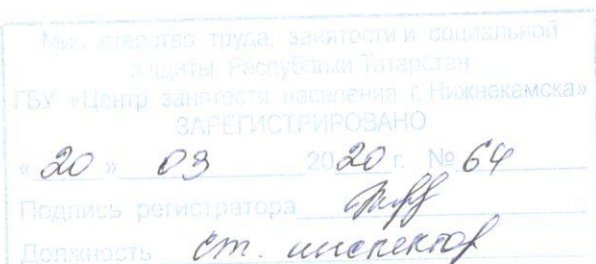 Министерство труда, занятости и социальной
защиты Республики Татарстан
ГБУ «Центр занятости населения г. Нижнекамска»
ЗАРЕГИСТРИРОВАНО
«20» 03 2020 г. № 64
Подпись регистратора
Должность ст. инспектор